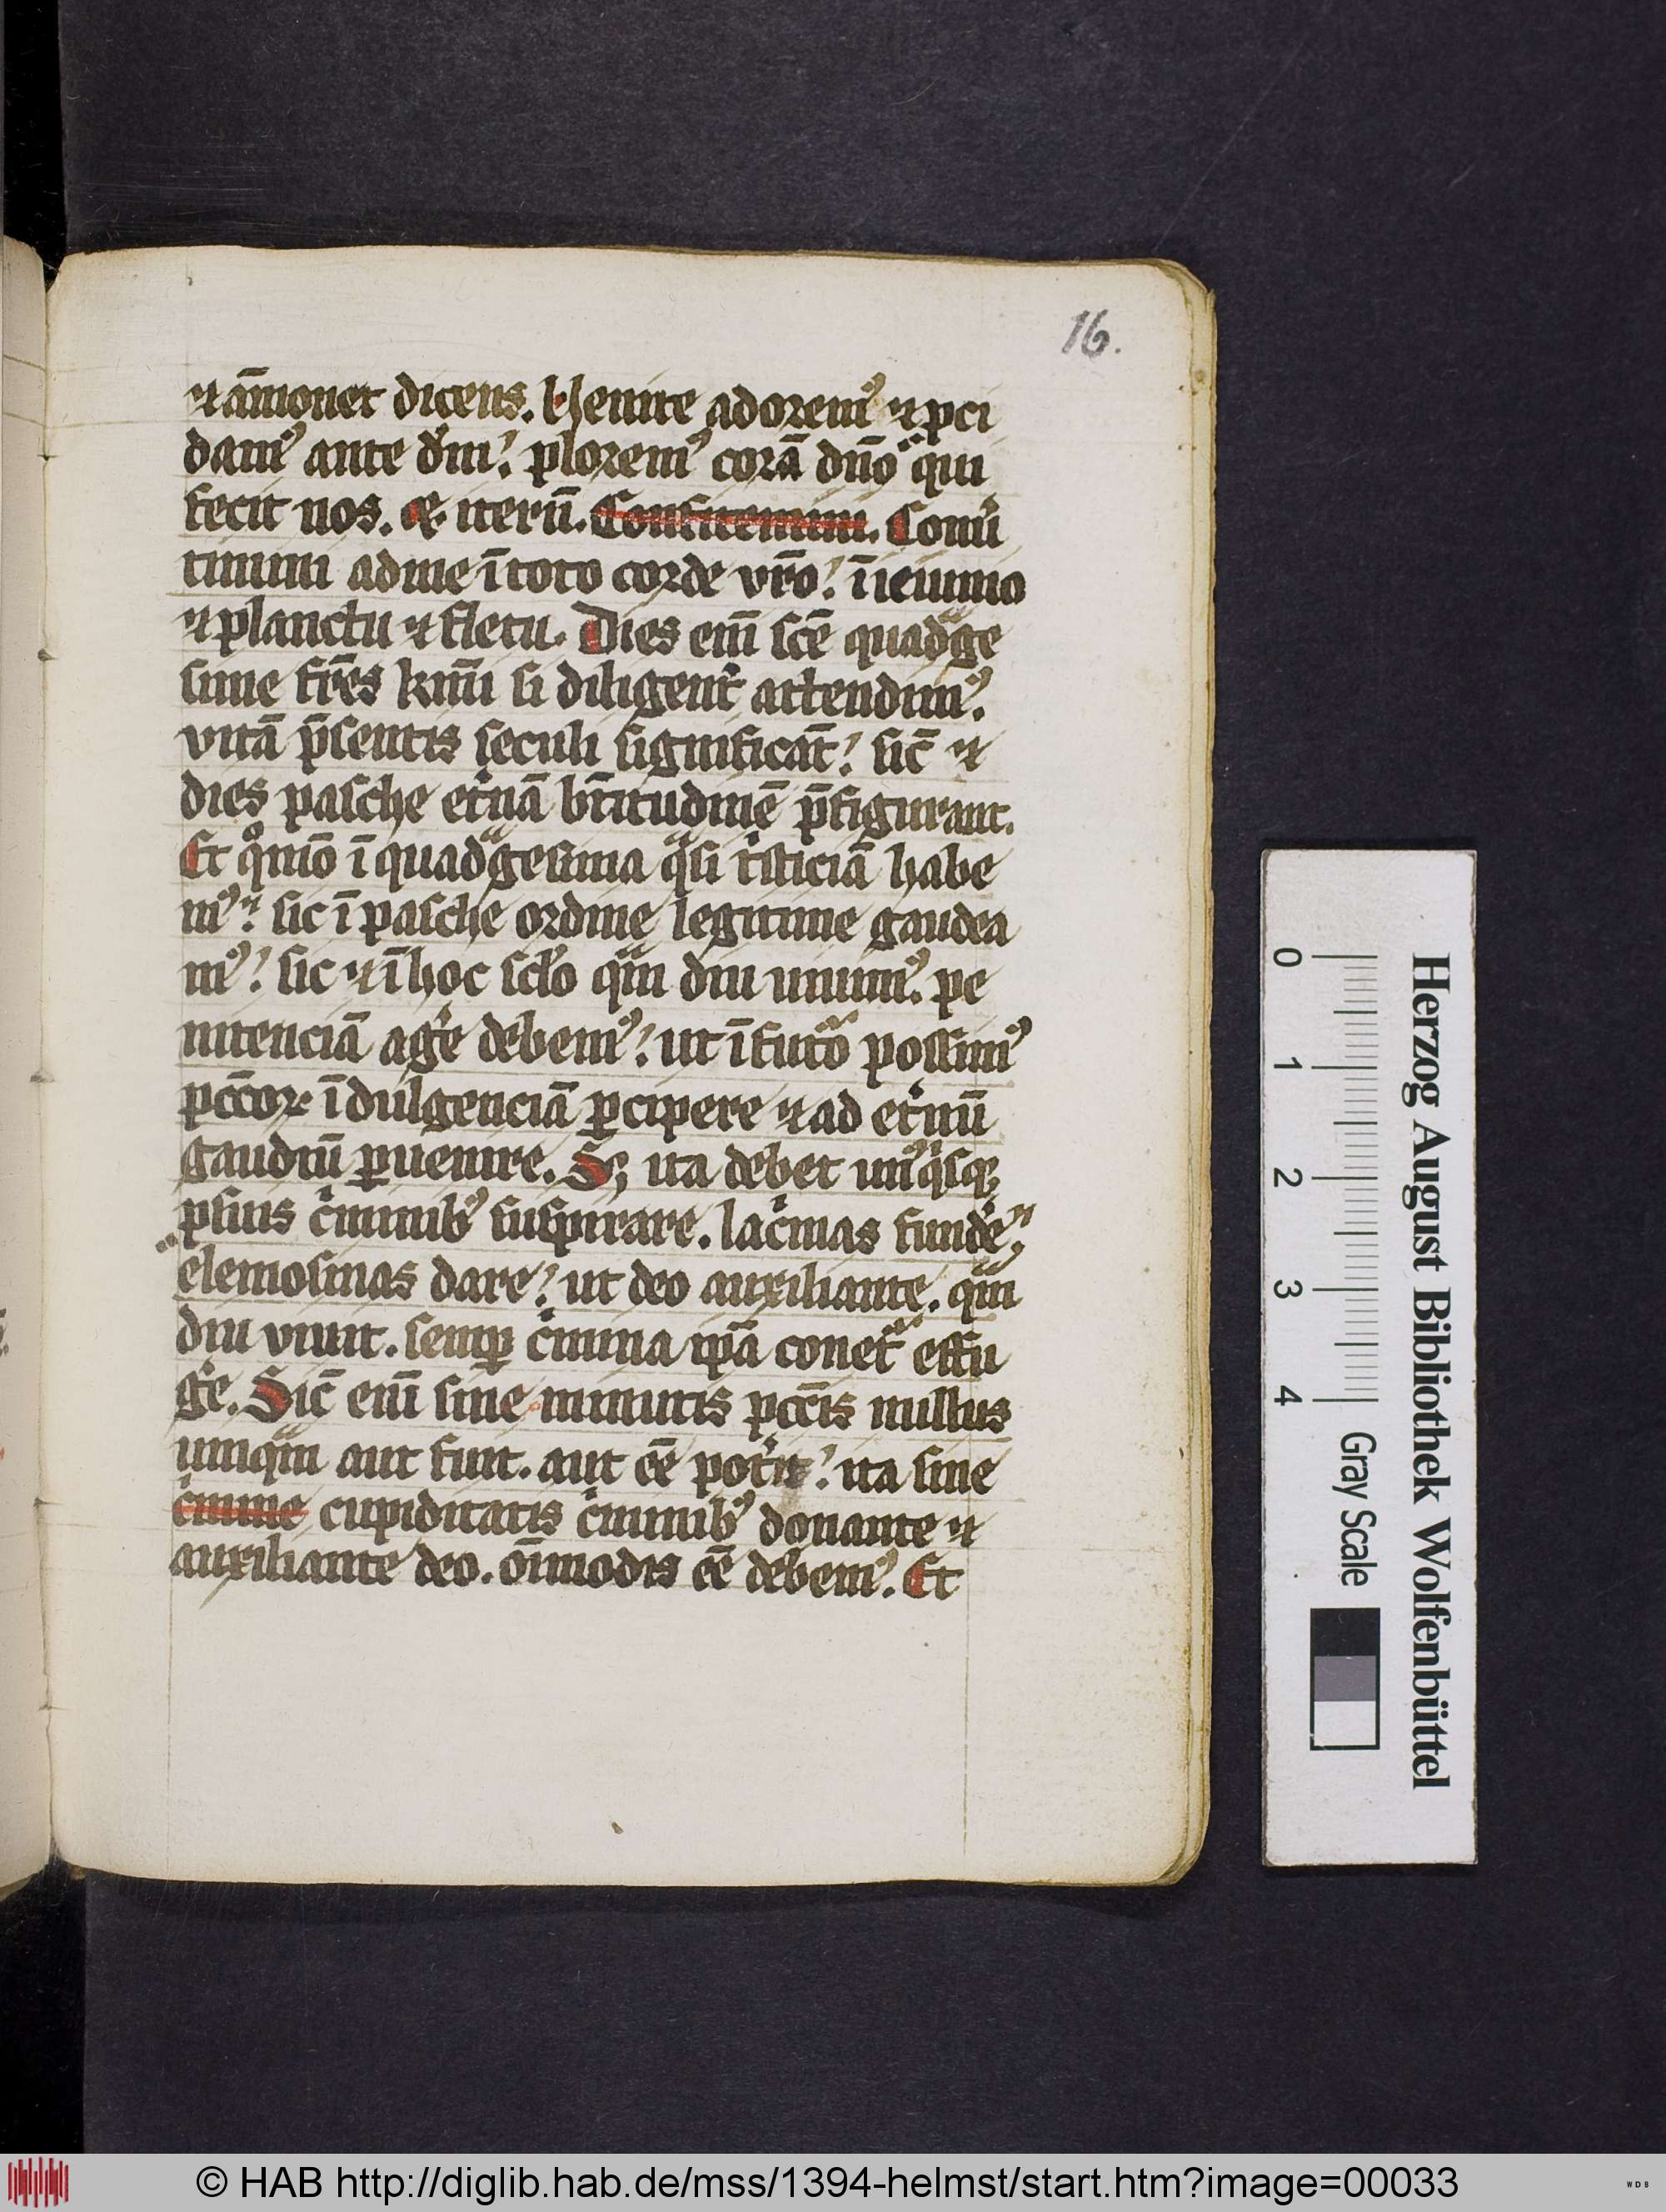 16.
⁊ am̄onet dicens. Uenite adorem⁹ ⁊ pci
dam⁹ ante dm̄: plorem⁹ corā dn̄o qui
fecit nos. Et iterū. Confitemini. Conu̓
timini ad me ī toto corde vr̄o: ī ieiunio
⁊ planctu ⁊ fletu. Dies eni̅ sc̄e quadᵃge
sime fr̄es km̄i si diligent̓ attendim⁹.
vitā p̄sentis seculi significāt: sic̄ ⁊
dies pasche et̓nā bt̄itudinē p̄figurant.
Et qͦmō ī quadᵃgesima qᵃsi t̓sticiā habe
m⁹: sic ī pasche ordine legitime gaudea
m⁹: sic ⁊ ī hoc sclo̓ qᵃm diu uiuim⁹. pe
nitenciā age̓ debem⁹: ut ī futᵒ possim⁹
pcc̄oꝝ īdulgenciā ꝑcipere ⁊ ad et̓nū
gaudiū ꝑuenire. Sꝫ ita debet un⁹qⁱsqꝫ
ꝓ suis c̓minib⁹ suspirare. lac̓mas funde̓,
elemosinas dare: ut deo auxiliante. qᵃm
diu viuit. semꝑ c̓mina ip̄a conet̓ effu
ge̓. Sic̄ eni̅ sine minutis pcc̄is nullus
unqᵃm aut fuit. aut ēē pot̓it: ita sine
c̓mine cupiditatis c̓minib⁹ donante ⁊
auxiliante deo. om̄imodis ēē debem⁹. Et
Herzog August Bibliothek Wolfenbüttel
0 1 2 3 4 Gray Scale
© HAB http://diglib.hab.de/mss/1394-helmst/start.htm?image=00033
WDB